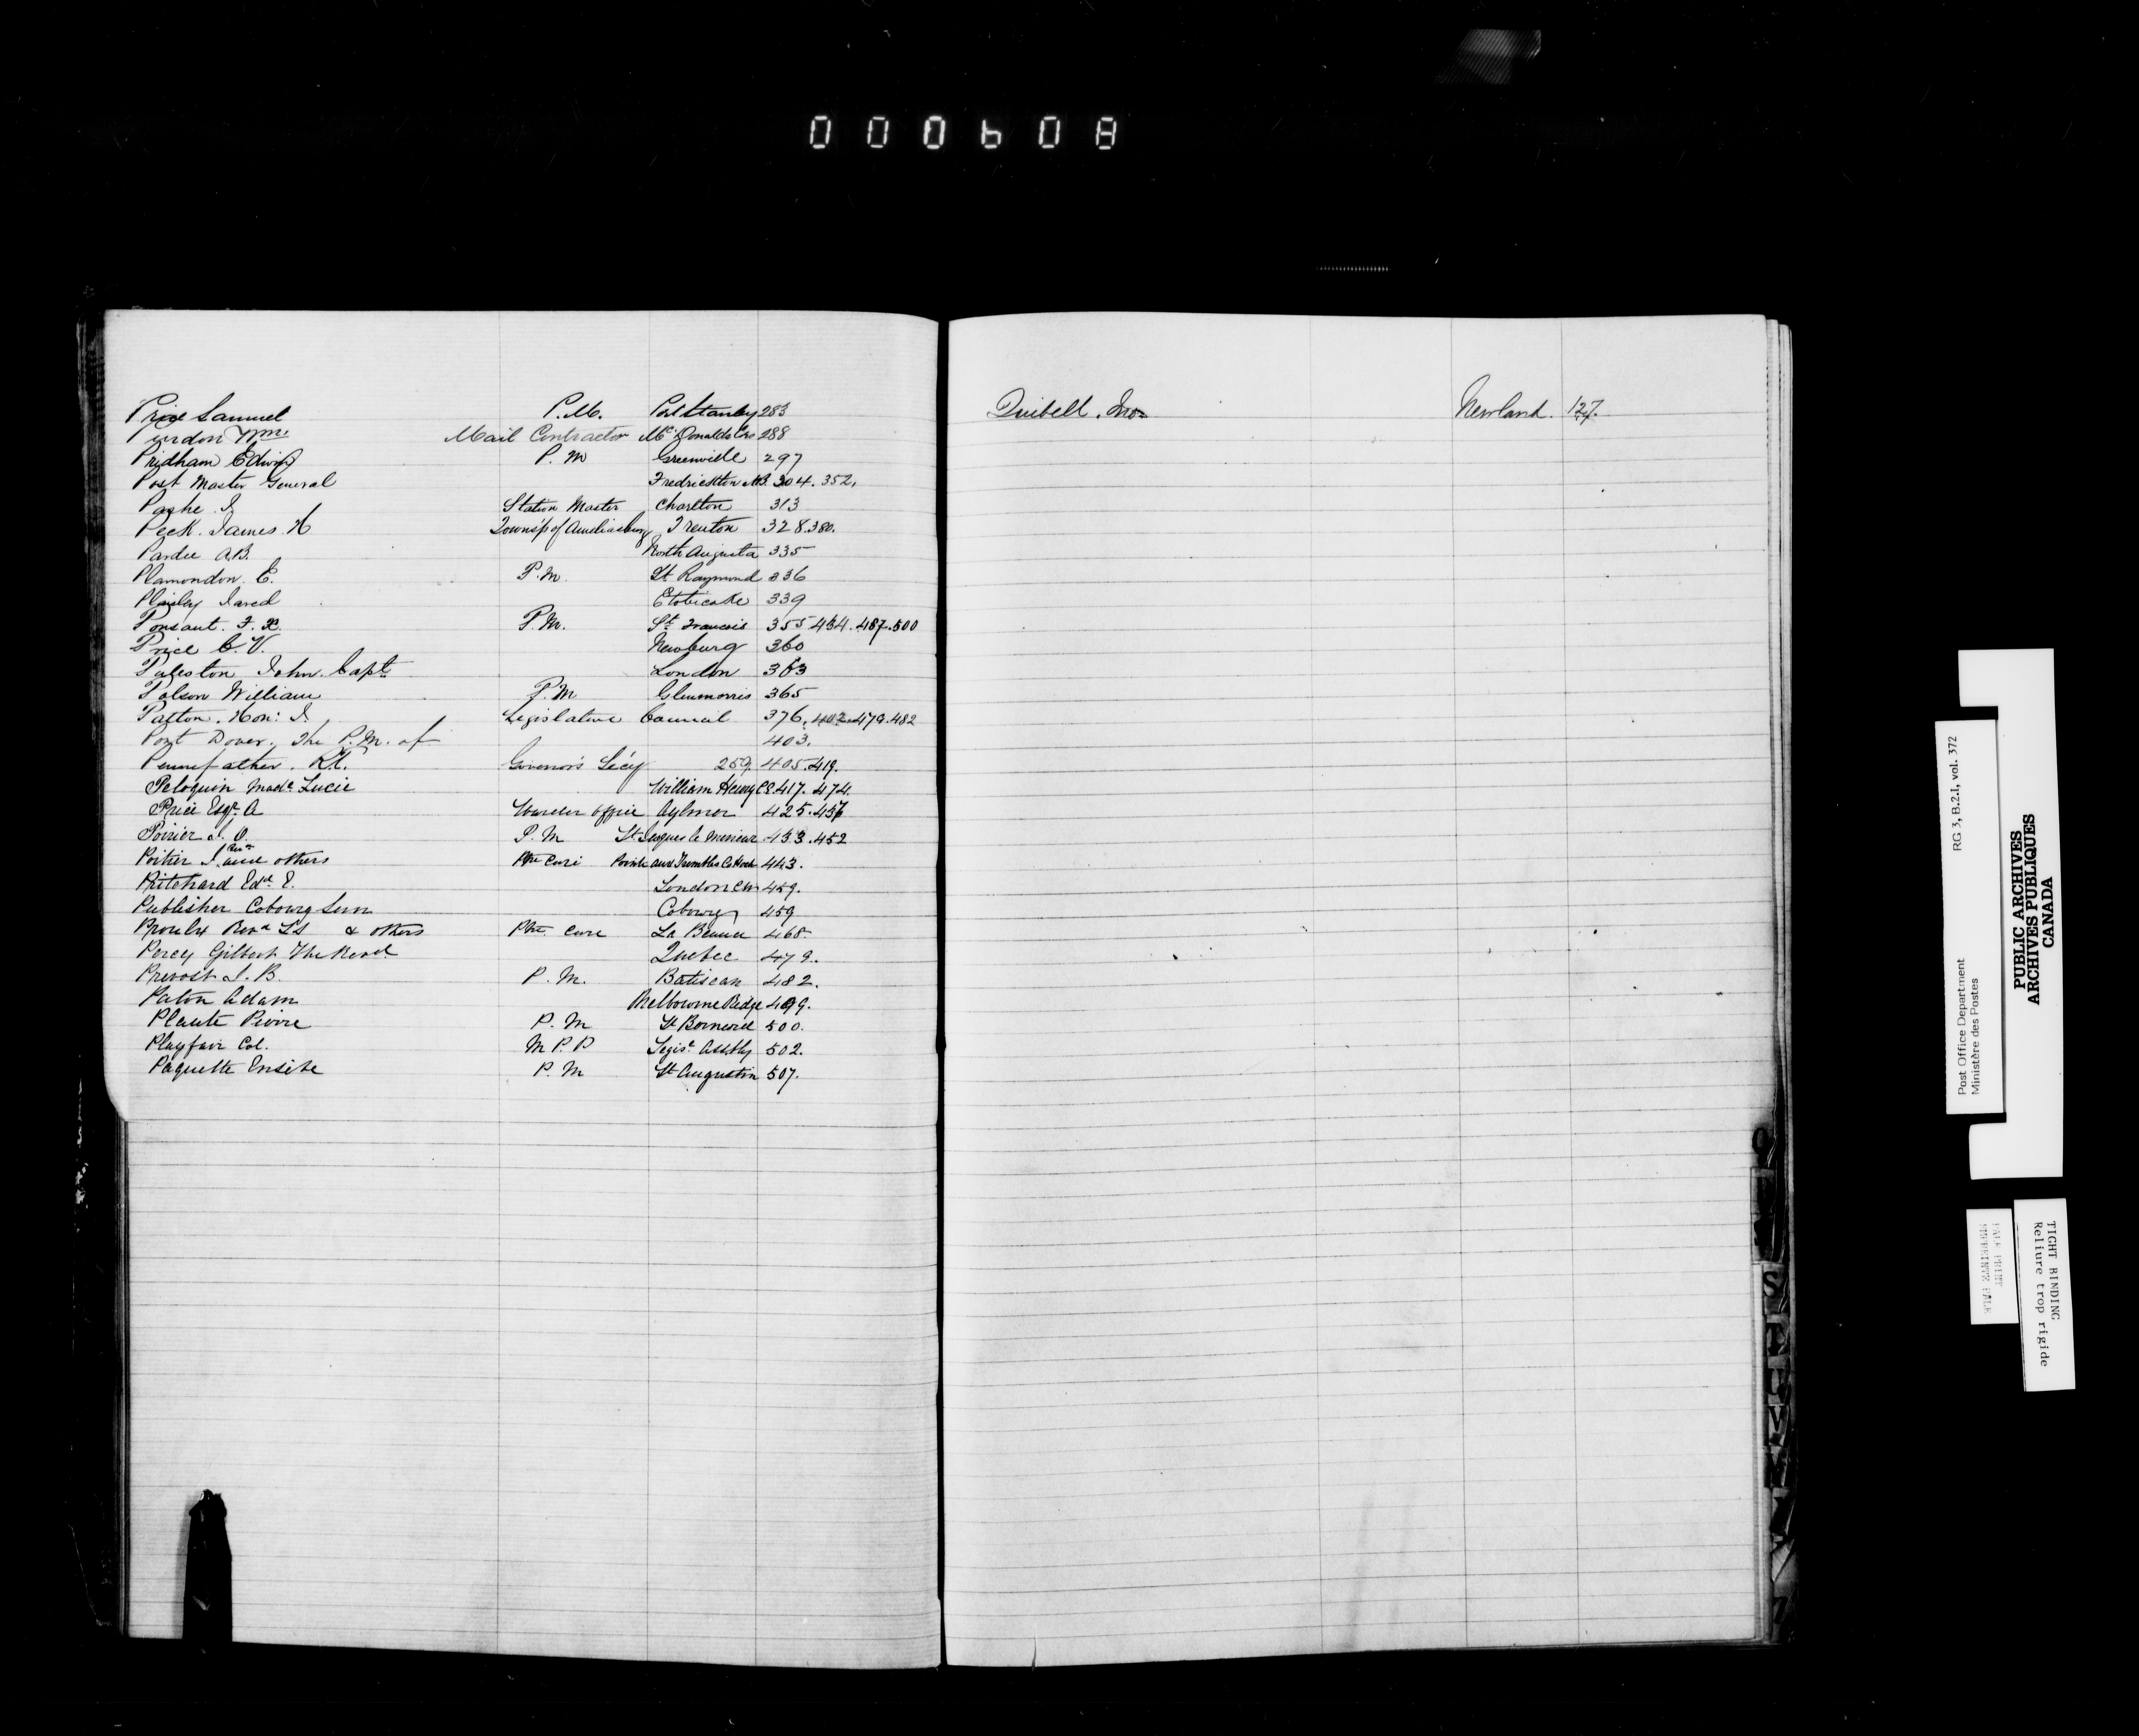 000608
Price Samuel P.M. Port Stanley 283
Purdon Wm. Mail Contractor McDonalds Cors 288
Pridham Edwin P.M Greenville 297
Post Master General Fredrickton N.B. 304. 352.
Pashe. J. Station Master Charlton 313
Peck. James. H Townsp of Ameliasburg Trenton 328.380.
Pardee A.B. North Augusta 335
Plamondon. E. P.M. St Raymond 336
Jared Etobicoke 339
Ponsant. F. X. P.M. St Francois 355.454.487.500
Price C. V. Newburg 360
Puleston John. Capt London 363
Polson William P.M Glenmorris 365
Patton. Hon: J. Legislative Council 376. 479.482
Port Dover. The P.M. of 403.
Pennefather. R.T. Govenor's Sécy 259. 405.419.
Peloquin Made Lucie William Henry CE.417. 474.
Price Esqr. A Warden office Aylmer 425.456
Poirier J. O. P. M St Jaques le Mineur 433.452
Poitier J. Revd and others Ptre Curé Pointe aux Trembles 443.
Pritchard Edd E. London CW 459.
Publisher Cobourg Sun Cobourg 459
Proulx Revd Ls & others Ptre Cure La Beauce 468.
Percy Gilbert The Revd Quebec 479.
Prevost J. B. P. M. Batiscan 482.
Paton Adam Melbourne Ridge 499.
Plante Pierre P. M St 500.
Playfair Col. M P. P Legist. Assbly 502.
Paquette Ensibe P. M St Augustin 507.
Quibell. Jno Newland. 127.
RG 3, B.2.1, vol. 372
Post Office Department
Ministère des Postes
PUBLIC ARCHIVES
ARCHIVES PUBLIQUES
CANADA
TIGHT BINDING
Reliure trop rigide
PALE PRINT
IMPRIMÉ PALE
Q
S
T
U
V
W